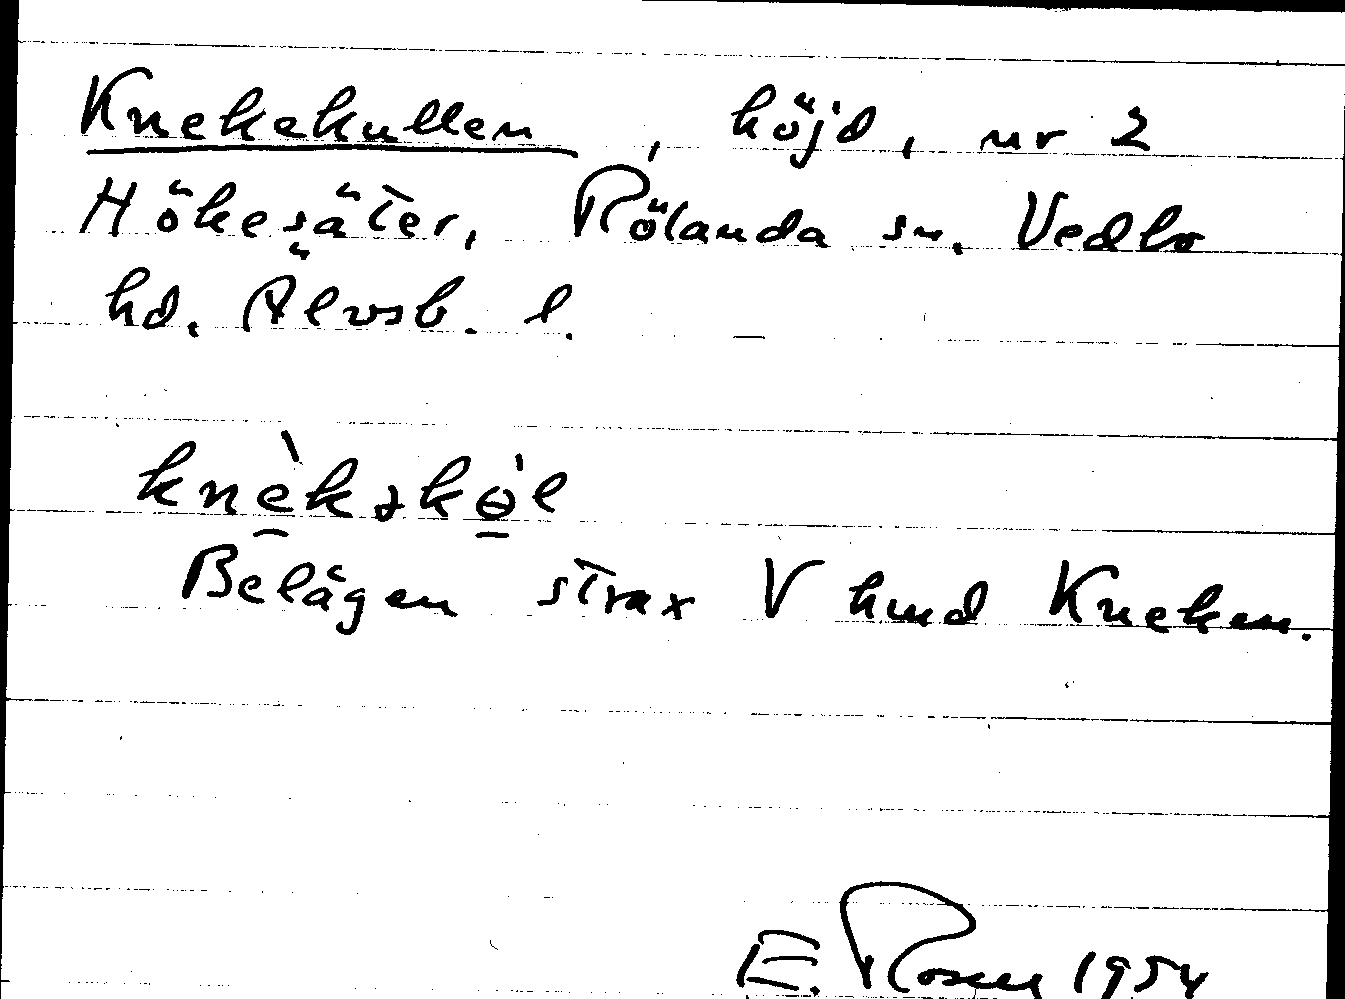 Knekekullen, höjd, nr 2
Hökesäter, Rölanda sn, Vedbo
hd. Älvsb. l.
knèkəkɵ̀l
Belägen strax V hmd Kneken.
E. Rosen 1954